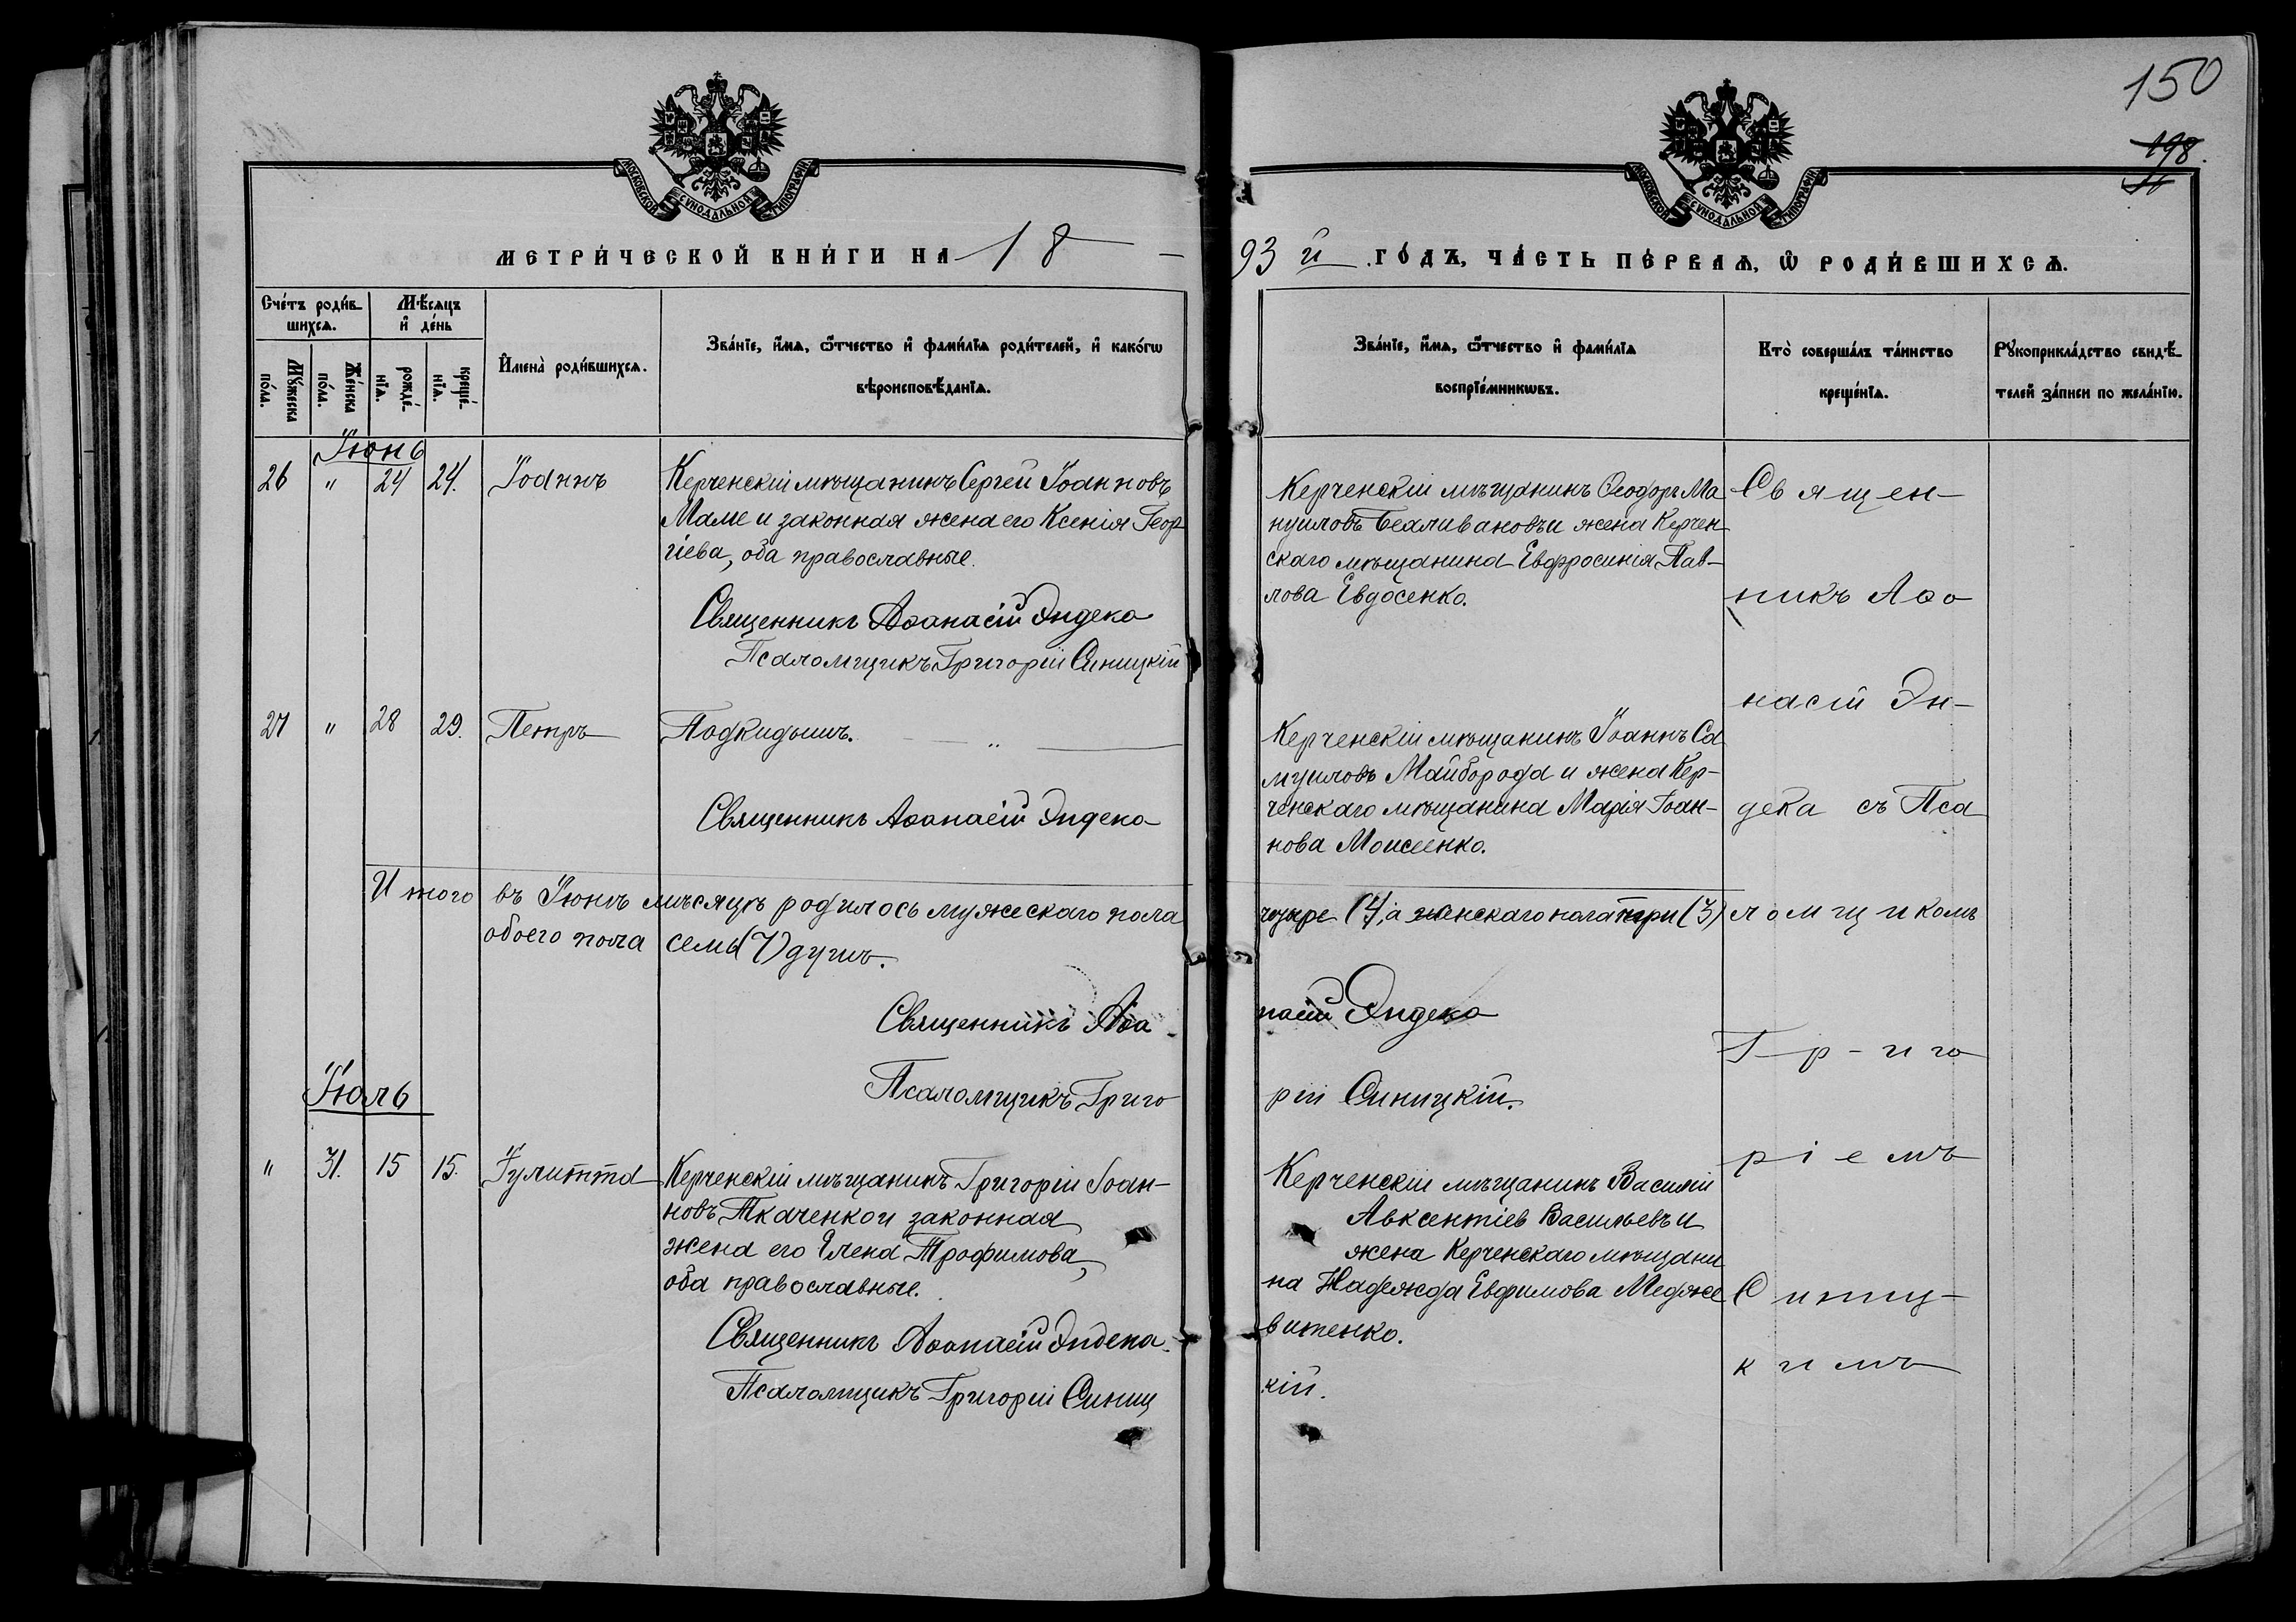 150
198.
МОСКОВСКОЙ СѴНОДАЛЬНОЙ ТИПОГРАФІИ
МОСКОВСКОЙ СѴНОДАЛЬНОЙ ТИПОГРАФІИ
МЕТРИ́ЧЕСКОЙ КНИ́ГИ НА 18
93 й ГО́ДЪ, ЧА́СТЬ ПЕ́РВАѦ, Ѡ҆ РОДИ́ВШИХСѦ.
Сче́тъ роди́вшихсѧ.
Мꙋ́жеска по́ла.
Же́нска по́ла.
Мѣ́сѧцъ и҆ де́нь
рожде́нїѧ.
креще́нїѧ.
И҆мена̀ роди́вшихсѧ.
Зва́нїе, и҆́мѧ, ѻ҆́тчество и҆ фами́лїѧ роди́телей, и҆ како́гѡ
вѣроисповѣ́данїѧ.
Зва́нїе, и҆́мѧ, ѻ҆́тчество и҆ фами́лїѧ
воспрїе́мникѡвъ.
Кто̀ соверша́лъ та́инство
креще́нїѧ.
Рꙋкоприкла́дство свидѣ́телей за́писи по жела́нїю.
Іюнь
26 " 24 24. Іоаннъ
Керченскій мѣщанинъ Сергей Іоанновъ
Маме и законная жена его Ксенія Геор
гіева, оба православные.
Священникъ Аѳанасій Эндека
Псаломщикъ Григорій Синицкій
Керченскій мѣщанинъ Ѳеодоръ Ма
нуиловъ и жена Керчен
скаго мѣщанина Евфросинія Пав-
лова Евдосенко.
27 " 28 29. Петръ
Подкидышъ. "
Священникъ Аѳанасій Эндека
Керченскій мѣщанинъ Іоаннъ Са
муиловъ Майборода и жена Кер-
ченскаго мѣщанина Марія Іоан-
нова Моисеенко.
Итого въ Іюнѣ мѣсяцѣ родилось мужескаго пола четыре (4), а женскаго пола три (3)
обоего пола семь (7) душъ.
Священникъ Аѳанасій Эндека
Псаломщикъ Григорій Синицкій.
Іюль
" 31. 15 15. Іулитта
Керченскій мѣщанинъ Григорій Іоан-
новъ Ткаченко и законная
жена его Елена Трофимова,
оба православные.
Священникъ Аѳанасій Эндека.
Псаломщикъ Григорій Синиц
кій.
Керченскій мѣщанинъ Василій
Авксентіев Васильевъ и
жена Керченскаго мѣщани
на Надежда Евфимова Медже
витенко.
Священ-
никъ Аѳа
насій Эн-
дека съ Пса
ломщикомъ
Гр-иго
ріемъ
Синиц-
кимъ